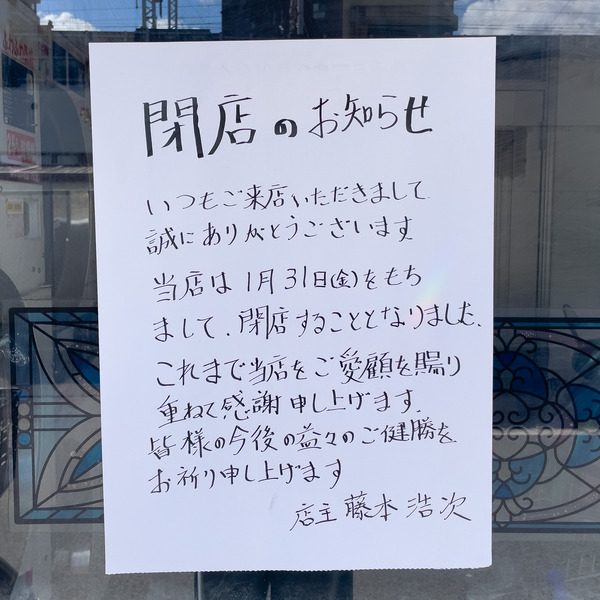 閉店のお知らせ
いつもご来店いただきまして
誠にありがとうございます
当店は1月31日(金)をもち
まして、閉店することとなりました、
これまで当店をご愛顧を賜り
重ねて感謝申し上げます、
皆様の今後の益々のご健勝を
お祈り申し上げます
店主 藤本 浩次